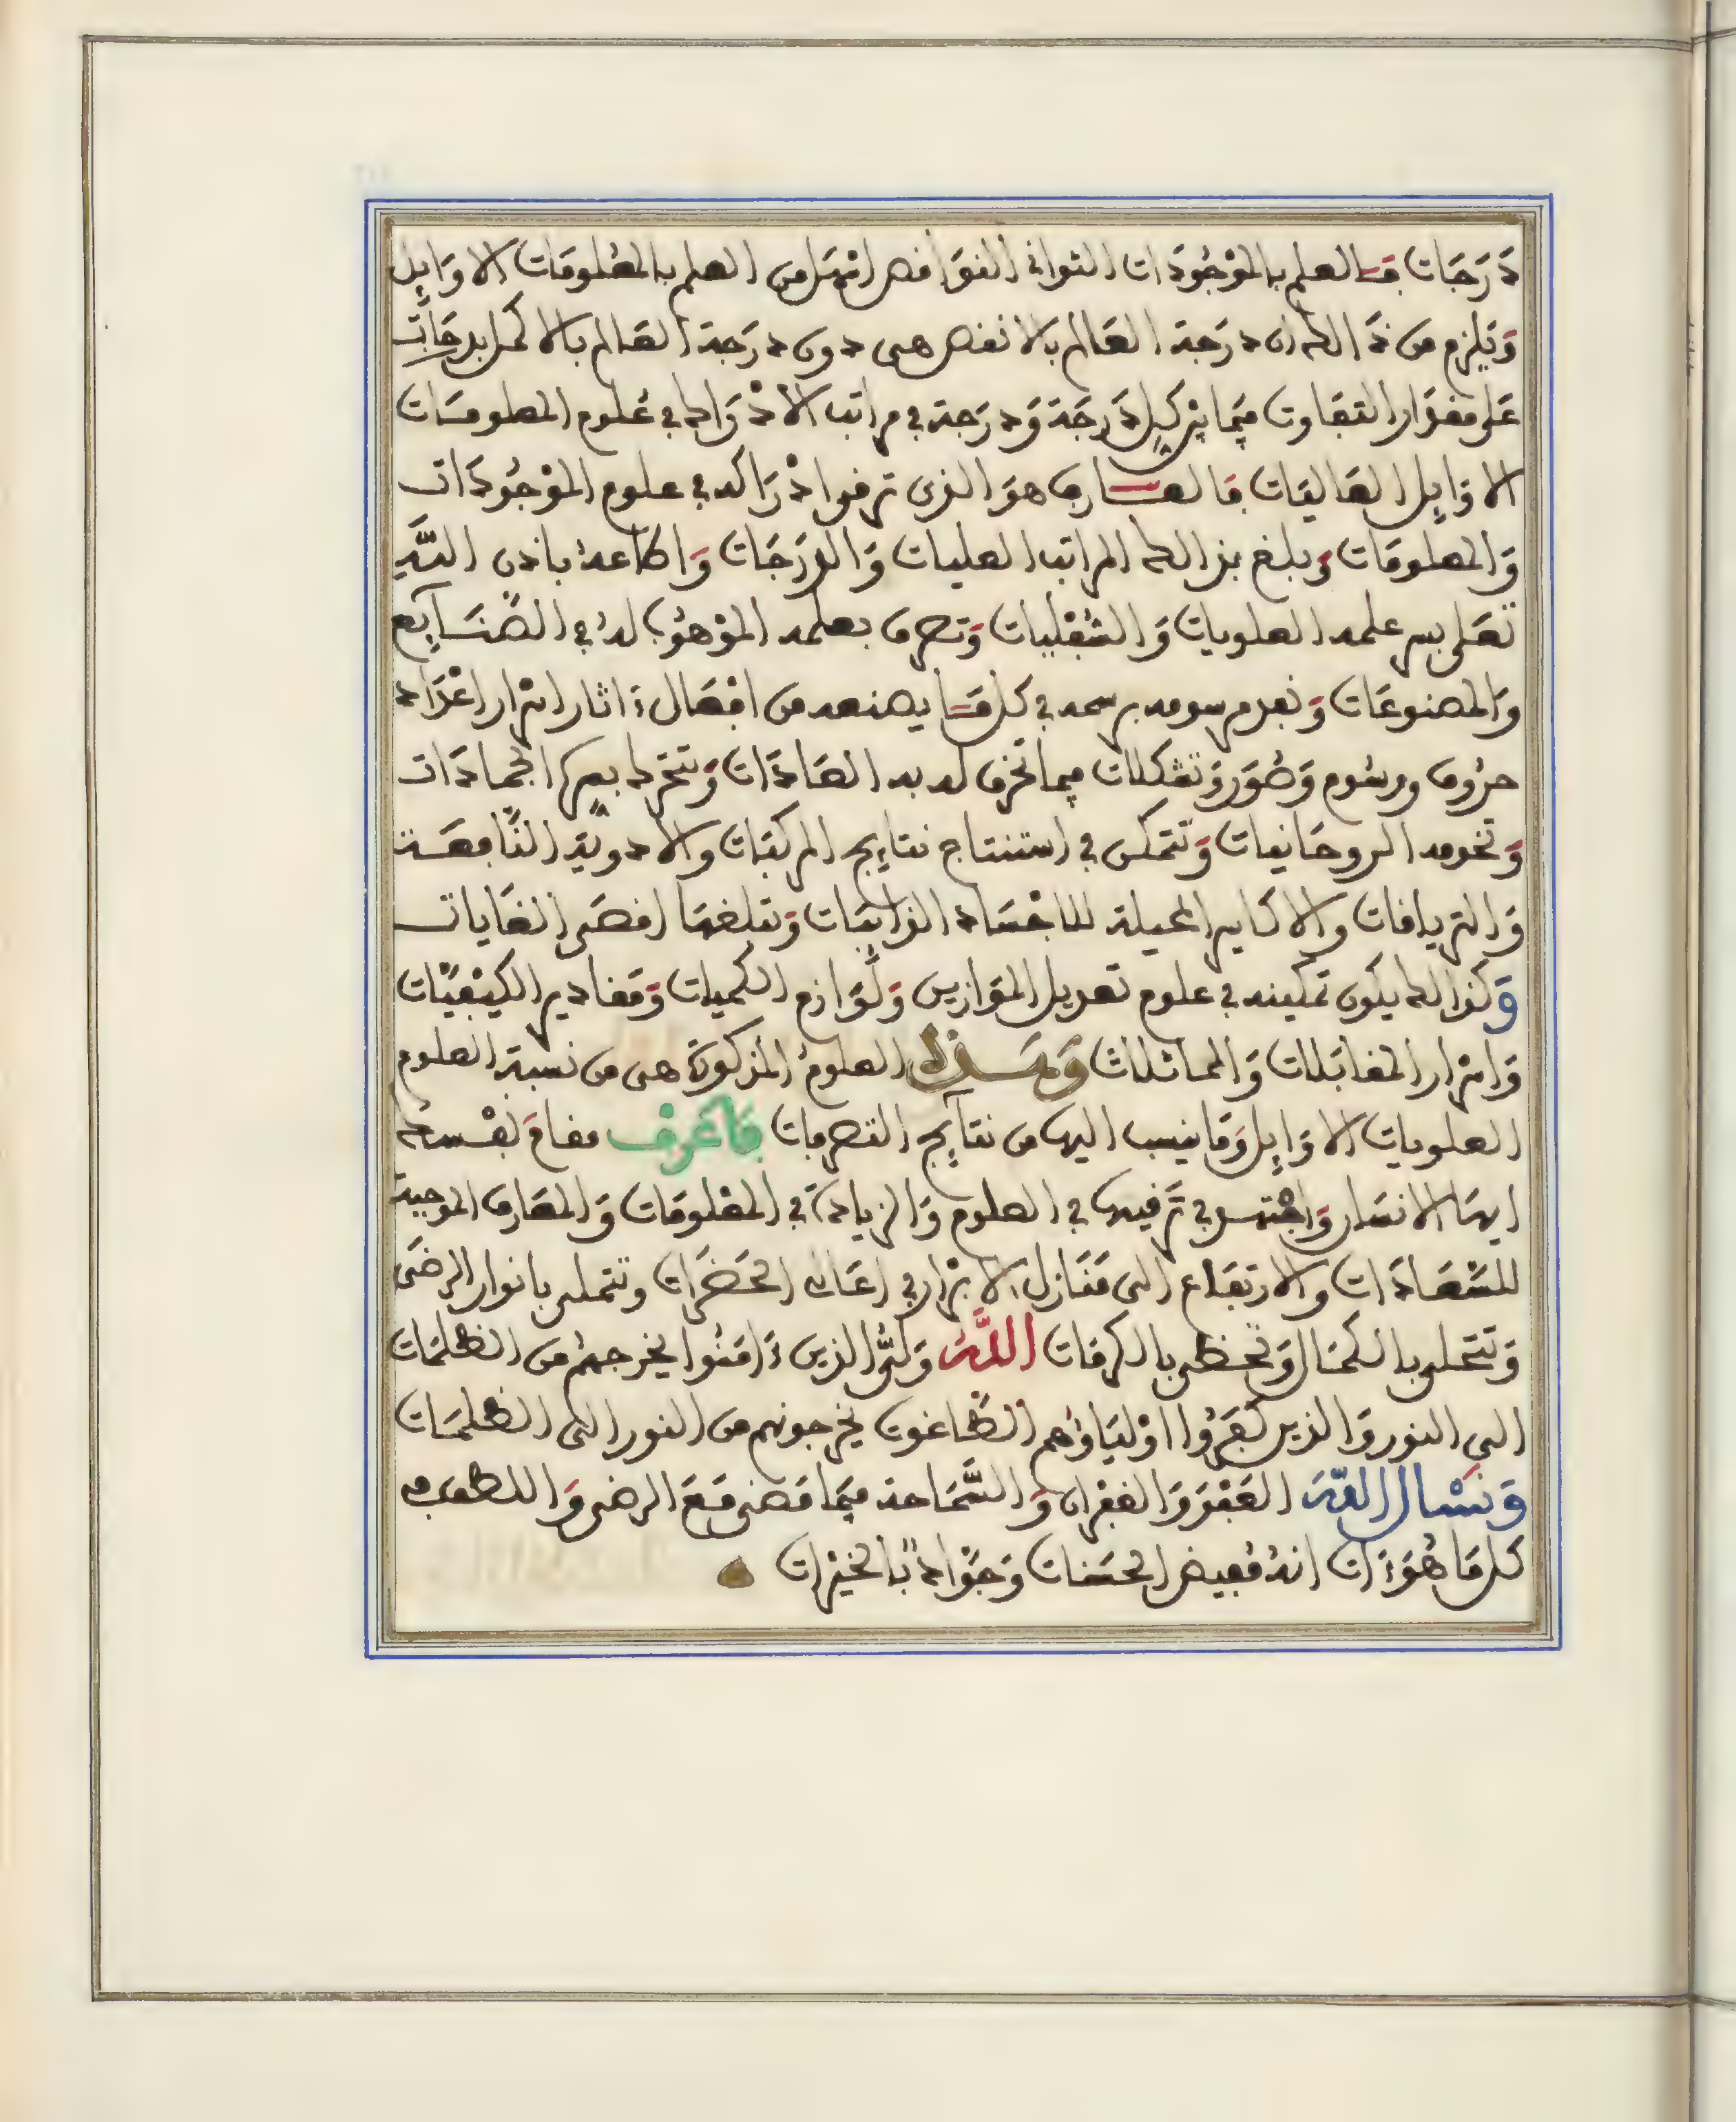 دَرَجَات فَالعلم بالمَوْجُودَات الثوانى النقَّا فص انْزل من العلم بالمعْلومَات الاوَايِل
وَيَلزم من ذَالك ان درَجَة العَالم بالانقص هى دون درَجَة العَالم بالاكمل بدرجَات
عَلى مقدَار التفَاوت فيمَا بيْن كل دَرجَة وَدرَجة في مراتب الادْرَاك في عُلوم المعلومَات
الاوَايِل العَاليَات فالعَارف هوَ الذى ترقى ادْرَاكه في علوم الموْجُودَات
وَالمعلومَات وبلغ بذالك المراتب العليات وَالدرَجَات وَاطاعهُ باذن اللَّهِ
تعَلى بسر علمه العلويات وَالسُّفْليات وَتصرف بعلمه الموْهُوب لهُ في الصَّنَايِع
وَالمصنوعَات وَنعدم رسومه برسمه في كل مَا يصنعه من افْعَال ءاثار اسْرار اعْدَاد
حرُوف ورسُوم وَصُوَر وَتشكلات فيما تخرق له به العَادَات وَتتحَرك بسرها الجمادَات
وَتخدمه الروحَانيات وَتتمكن في استنتاج نتايِج المركبَات والادوية النَّافعَة
وَالترياقات والاكاسير المحيلة للاجْسَاد الذايبَات وَتبلغهَا اقصَى الغَايات
وَكذالك يكون تمكينه في علوم تعديل الموَازين وَلَوَازم الكميات وَمقادير الكيْفيَّات
وَاسْرار المقابَلات وَالمماثلات وَهَذه العلومُ المذكورَة هى من نسبة العلوم
العلويات الاوَايِل وَما ينسب اليها من نتايِج التصرفات فَاعْرِف مقامَ نفْسكَ
ايهَا الانسَان وَاجْتهد في ترَقيها في العلوم وَالزيادَة في المعْلومَات وَالمعَارف الموجبة
للسَّعَادَات والارتفاع الى مَنَازل الابْرار في اعَالى الحَضَرَات وتتملى بانوار الرضَى
وَتتحلى بالكمَال وَتحظى بالكرمَات اللَّهُ وَلىُّ الذين ءَامَنُوا يخرجهمْ من الظلمَات
الى النور وَالذين كفَرُوا اوْليَاؤهم الطَّاغوت يخرجونهم من النور الى الظلمَات
وَنَسْال اللَّهَ العَفْوَ وَالغفران وَالسَّمَاحة فيمَا مَضى مَعَ الرضى وَاللطف في
كل مَا هُوَءات انهُ مُفيض الحسَنات وَجَوَادٌ بالخيْرات